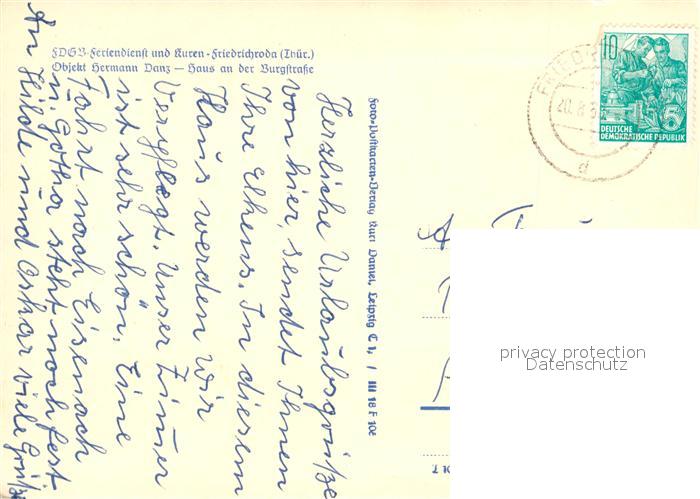 FDGB-Feriendienst und Kuren - Friedrichroda (Thür.)
Objekt Hermann Danz — Haus an der Burgstraße
Herzliche Urlaubsgrüße
von hier, sendet Ihnen
Ihre Ehens. In diesem
Haus werden wir
verpflegt. Unser Zimmer
ist sehr schön. Eine
Fahrt nach Eisenach
u. Gotha steht noch fest
An Hilde und Oskar viele Grüße
Foto-Postkarten-Verlag Kurt Daniel, Leipzig C 1, / III 18 F 106
FRIED
20. 8.
d
10
5
DEUTSCHE
DEMOKRATISCHE REPUBLIK
privacy protection
Datenschutz